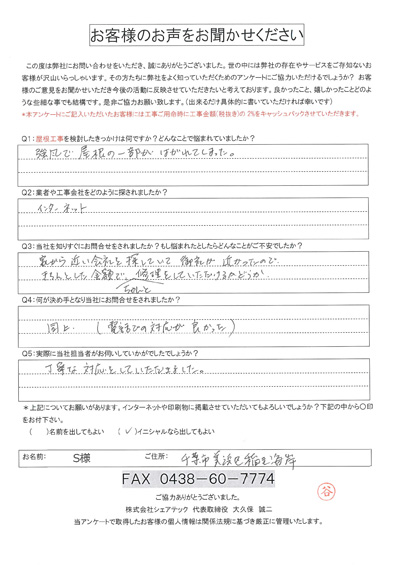 お客様のお声をお聞かせください
この度は弊社にお問い合わせをいただき、誠にありがとうございました。世の中には弊社の存在やサービスをご存知ないお
客様が沢山いらっしゃいます。その方たちに弊社をよく知っていただくためのアンケートにご協力いただけるでしょうか? お客
様のご意見をお聞かせいただき今後の活動に反映させていただきたいと考えております。良かったこと、嬉しかったことどのよ
うな些細な事でも結構です。是非ご協力お願い致します。(出来るだけ具体的に書いていただければ幸いです)
*本アンケートにご記入いただいたお客様には工事ご用命時に工事金額(税抜き)の2%をキャッシュバックさせていただきます。
Q1:屋根工事を検討したきっかけは何ですか?どんなことで悩まれていましたか?
強風で屋根の一部がはがれてしまった。
Q2:業者や工事会社をどのように探されましたか?
インターネット
Q3:当社を知りすぐにお問合せをされましたか?もし悩まれたとしたらどんなことがご不安でしたか?
家から近い会社を探していて御社が近かったので
きちんとした金額で、修理をしていただけるかどうか
ちゃんと
Q4:何が決め手となり当社にお問合せをされましたか?
同上 (電話での対応が良かった)
Q5:実際に当社担当者がお伺いしていかがでしたでしょうか?
丁寧な対応をしていただきました。
*上記についてお願いがあります。インターネットや印刷物に掲載させていただいてもよろしいでしょうか?下記の中から〇印
をお付下さい。
( )名前を出してもよい (✓)イニシャルなら出してもよい
お名前: S様 ご住所: 千葉市美浜区稲毛海岸
FAX 0438-60-7774
ご協力ありがとうございました。
株式会社シェアテック 代表取締役 大久保 誠二
当アンケートで取得したお客様の個人情報は関係法規に基づき厳正に管理いたします。
谷